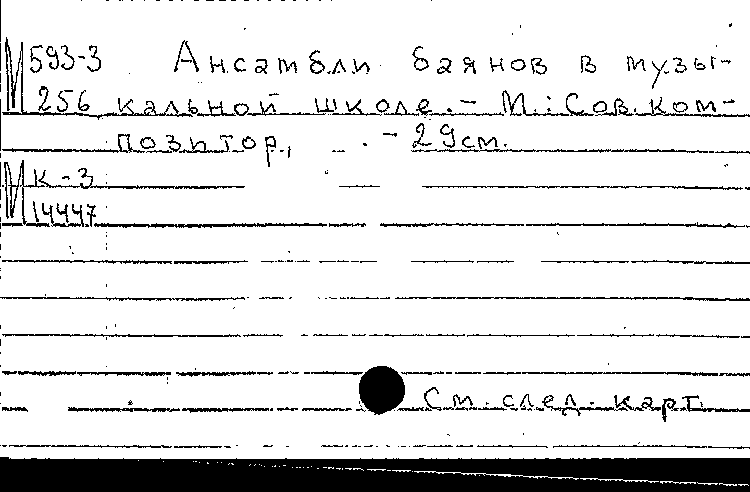 М 593-3 Ансамбли баянов в музы-
256 кальной школе. - М.: Сов. ком-
позитор, . - 29см.
М к-3
14447
См. след. карт.